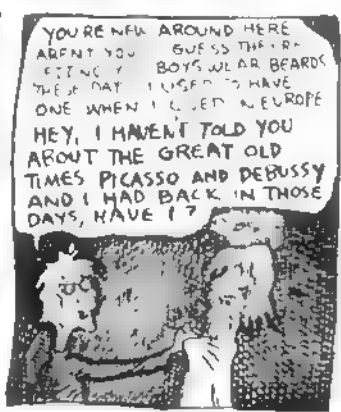 YOU'RE NEW AROUND HERE
ARENT YOU GUESS THEY'RE
BOYS WEAR BEARDS
THESE DAY I USED TO HAVE
ONE WHEN I LIVED IN EUROPE
HEY, I HAVEN'T TOLD YOU
ABOUT THE GREAT OLD
TIMES PICASSO AND DEBUSSY
AND I HAD BACK IN THOSE
DAYS, HAVE I?